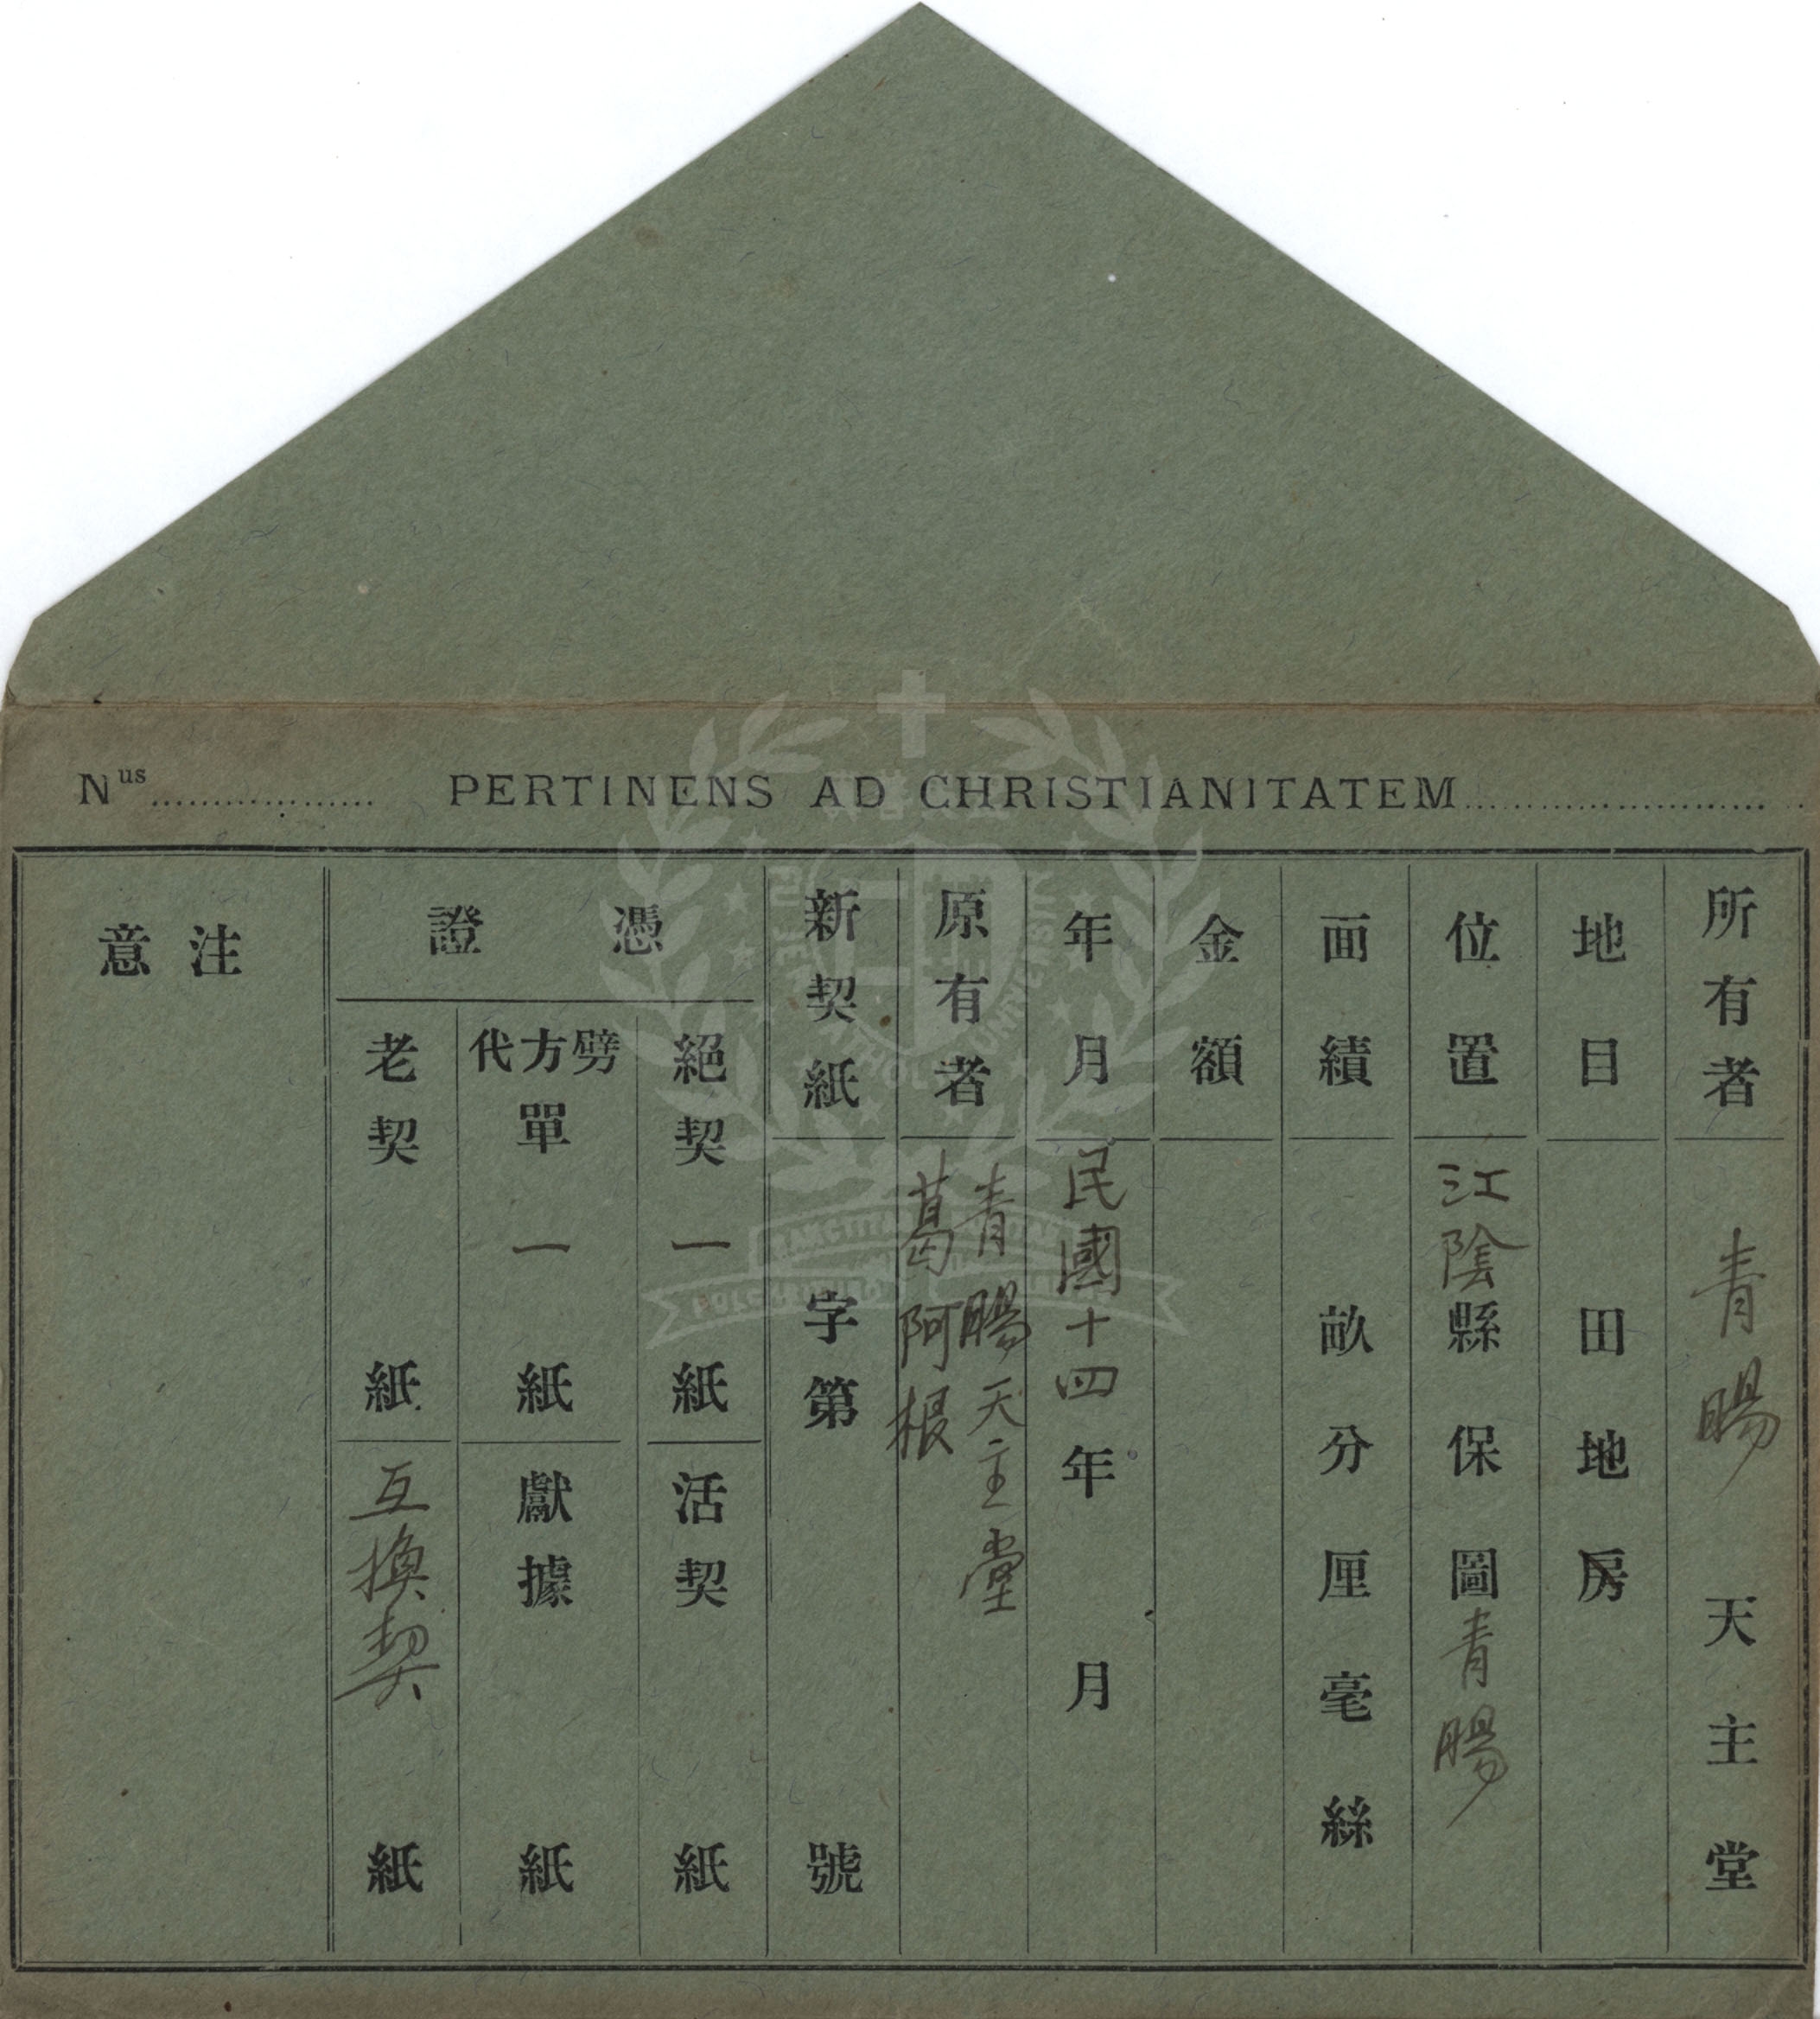 Nus.................. PERTINENS AD CHRISTIANITATEM........................
所有者 青暘 天主堂
地目 田地房
位置 江陰縣保圖青暘
面績 畝分厘毫絲
金額
年月 民國十四年 月
原有者 青暘天主堂
葛阿根
新契紙 字第 號
憑證
絕契 一紙
活契 紙
劈方代單 一紙
獻據 紙
老契 紙
互換契 紙
注意